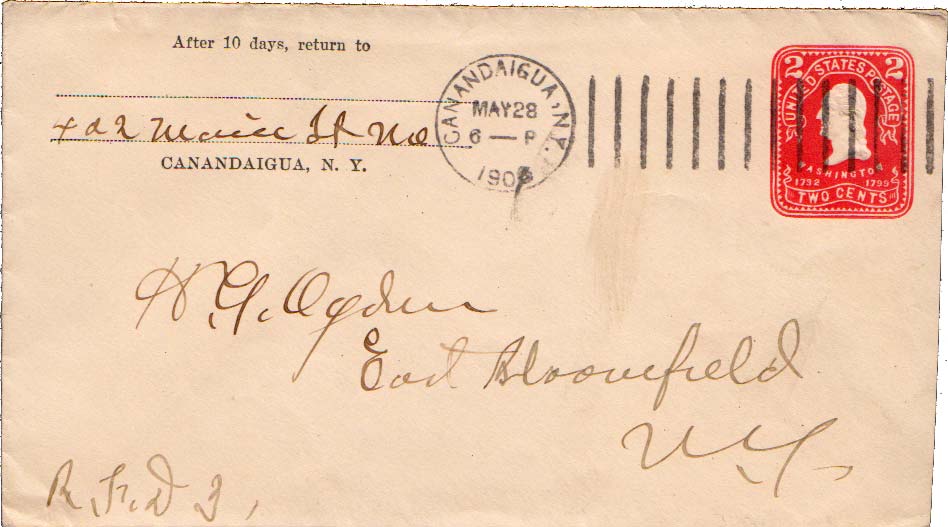 After 10 days, return to
422 Main St No
CANANDAIGUA, N. Y.
CANANDAIGUA, N.Y.
MAY 28
6 — P
190
2 2
UNITED STATES POSTAGE
WASHINGTON
1732 1799
TWO CENTS
H. G. Ogden
East Bloomfield
N. Y.
R. F. D 3,